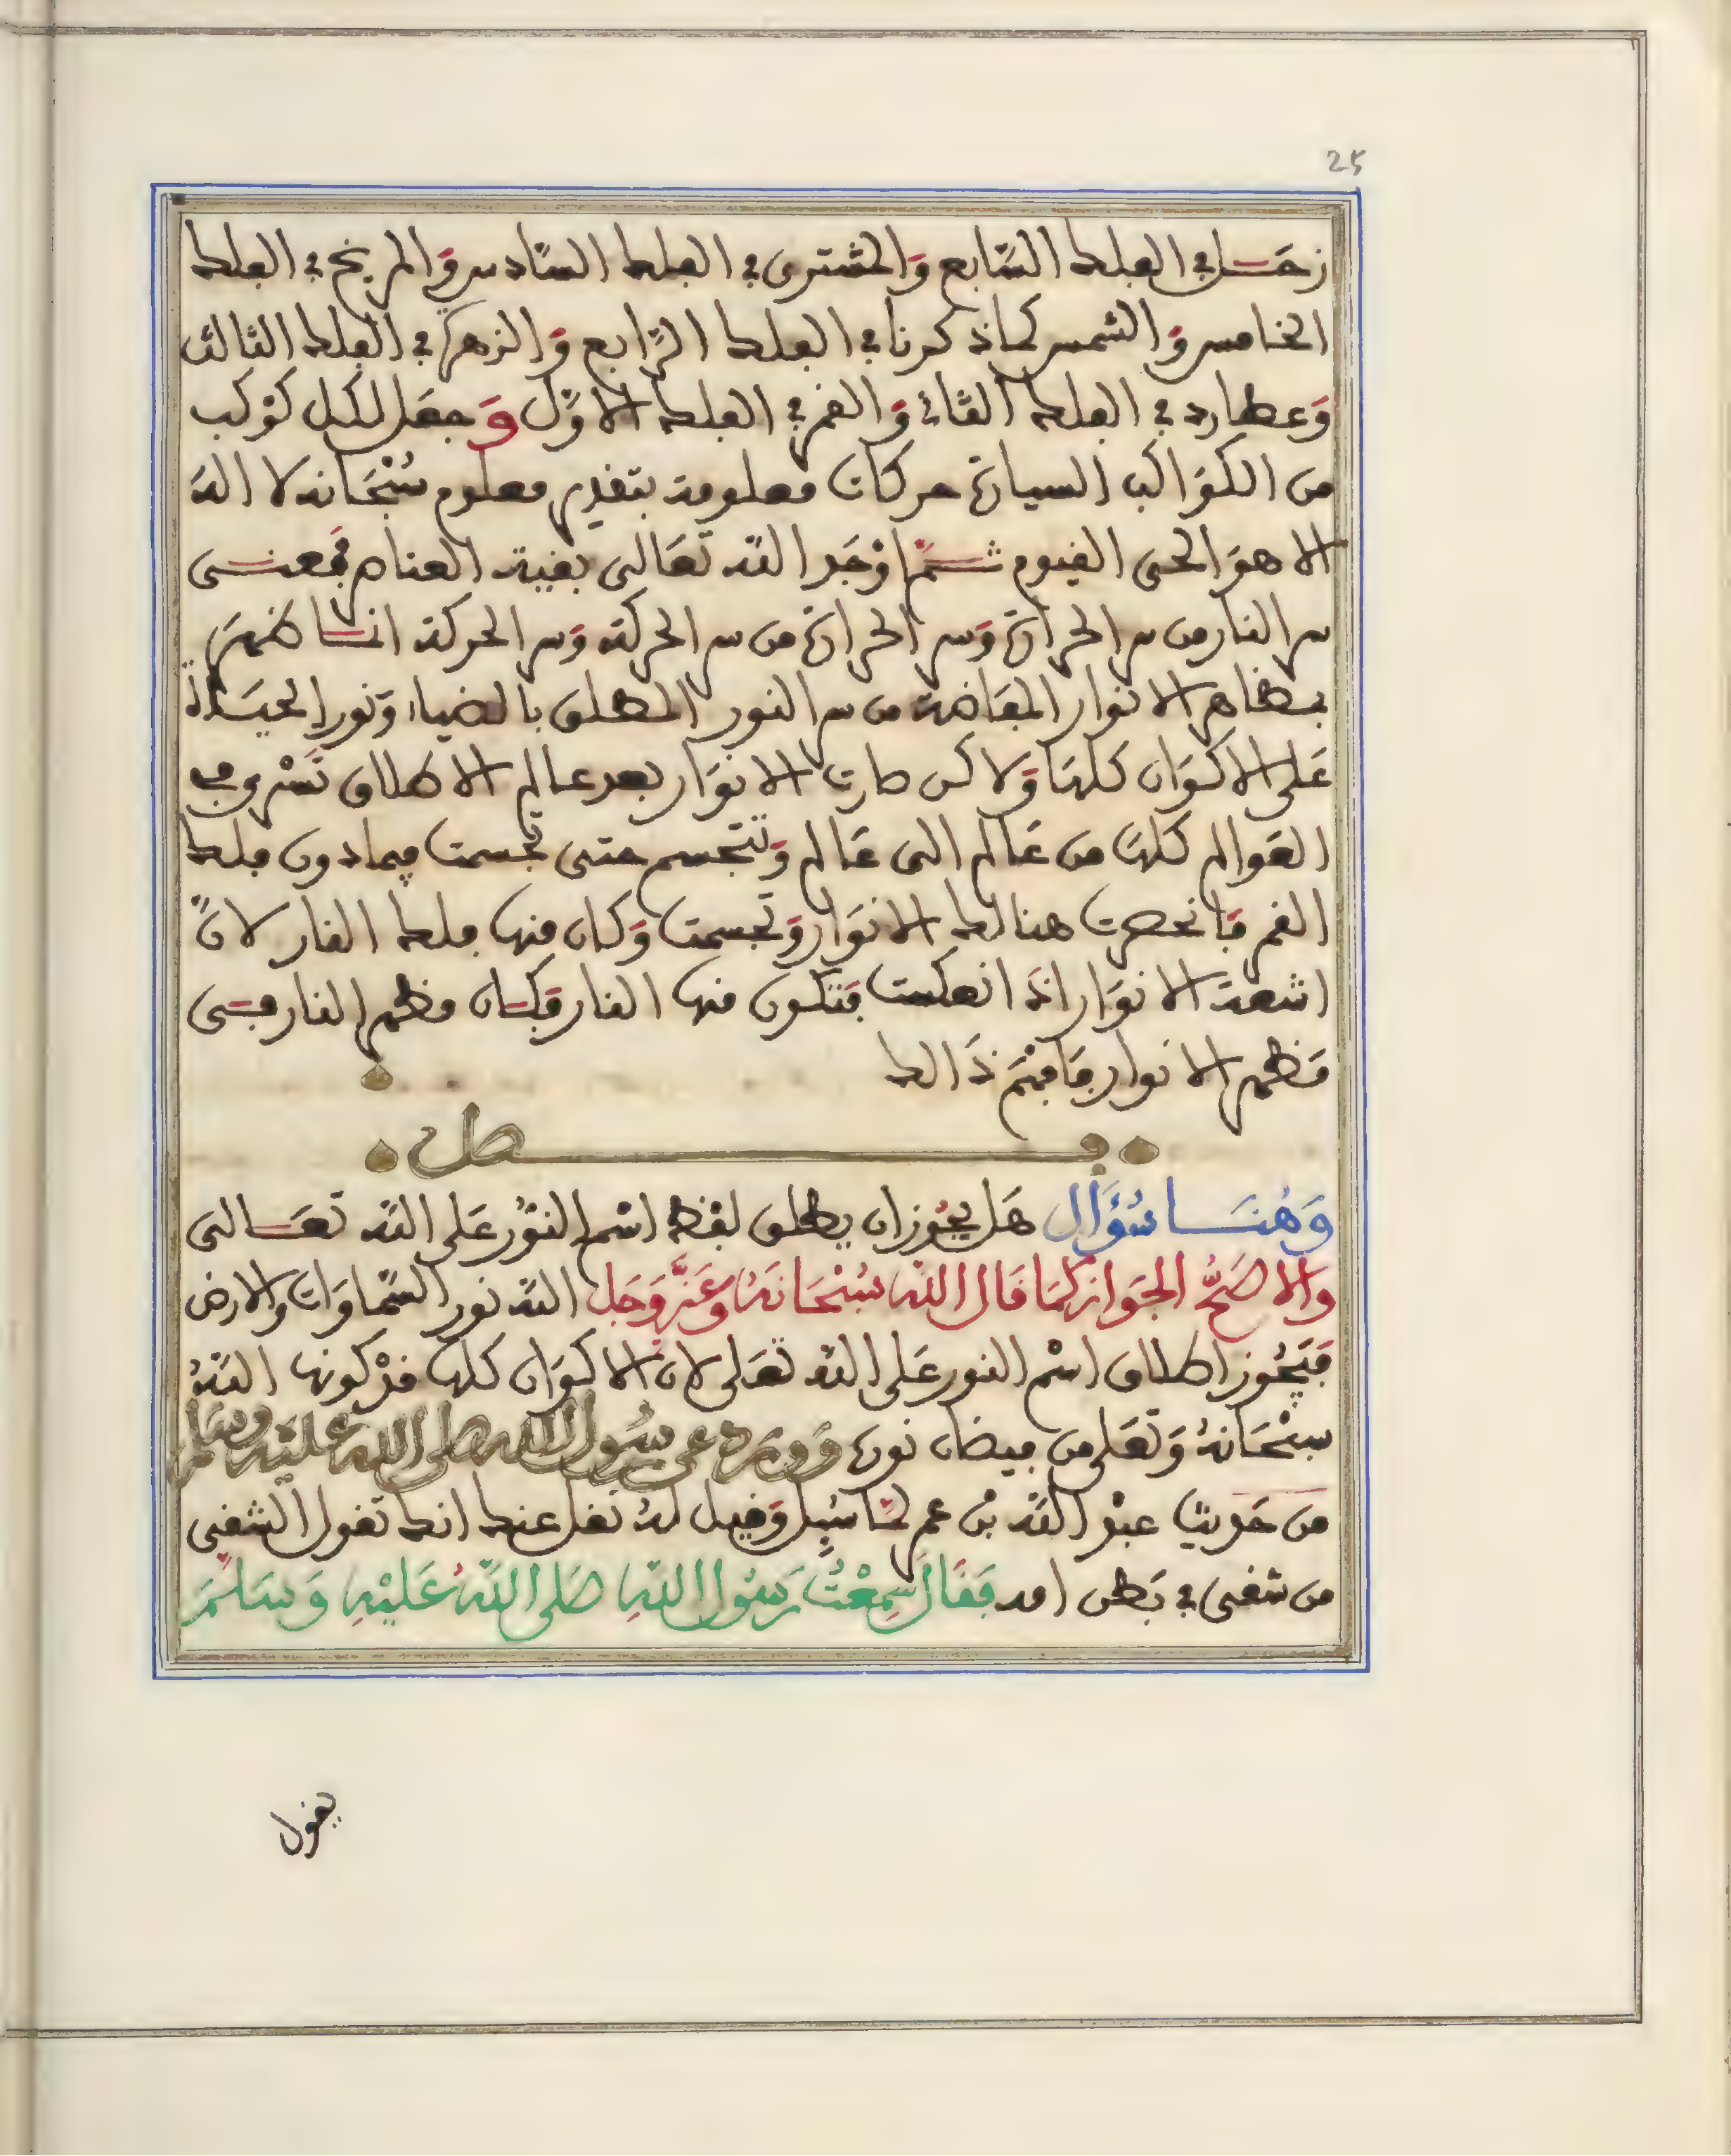 25
زحل في الفلك السّابع وَالمشترى في الفلك السّادس وَالمريخ في الفلك
الخامس وَالشمس كما ذكرنا في الفلك الرّابع وَالزهرة في الفلك الثالث
وَعطارد في الفلك الثاني وَالقمر في الفلك الاوّل وَجعَل لكل كوْكب
من الكوَاكب السيارة حركات معلومة بتقدير معلوم سُبْحَانه لا الٰه
الا هوَ الحى القيوم ثمَّ اوْجَد اللّه تعَالى بقية العناصر فمعنى
سر النار من سر الحرَارة وَسر الحرارة من سر الحركة وَسر الحركة انما ظهرَ
بمظاهر الانوار المفَاضة من سر النور المطلق بالضياء وَنور الحيَاة
عَلى الاكوَان كلهَا وَلاكن صارت الانوَار بعد عالم الاطلاق تَسْرى في
العَوالم كلهَا من عَالم الى عَالم وَتتجسم حتى تجسمت فيما دون فلك
القمر فَانحصرت هنالك الانوَار وَتجسمت وَكان منها فلك النار لانَّ
اشعة الانوَار اذَا انعكست فتتكون منها النار فكان مظهر النار فى
مَظهر الانوار فَافهَم ذَالك
فصل
وَهُنَا سُؤَال هَل يجُوز ان يطلق لفظ اسْم النوُر عَلى اللّه تعَالى
والاصَحُّ الجَواز كمَا قَال اللّه سُبْحَانَهُ وَعَزَّ وَجَل اللّه نور السّمَاوَات والارض
فيَجُوز اطلاق اسْم النور عَلى اللّه تعَلى لان الاكوَان كلها قدْ كونها اللّهُ
سبْحَانهُ وَتعَلى من فيضان نوره وَوَرَد عن رسُول اللّه صلى اللّه عليْه وسَلم
من حَديث عبْد اللّه بْن عمر لمّا سُئِل وَقيل لهُ نقل عنك انك تقول الشقى
من شقى في بَطن امه فَقَالَ سَمِعْتُ رَسُولَ اللّهِ صَلى اللّهُ عَليْهِ وَسَلمَ
يقول